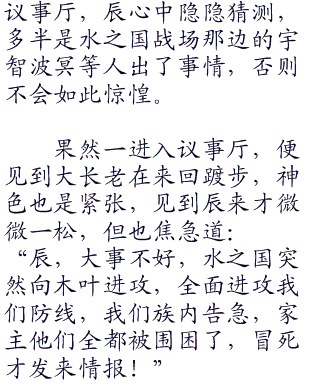 议事厅，辰心中隐隐猜测，
多半是水之国战场那边的宇
智波冥等人出了事情，否则
不会如此惊惶。
果然一进入议事厅，便
见到大长老在来回踱步，神
色也是紧张，见到辰来才微
微一松，但也焦急道：
“辰，大事不好，水之国突
然向木叶进攻，全面进攻我
们防线，我们族内告急，家
主他们全都被围困了，冒死
才发来情报！”